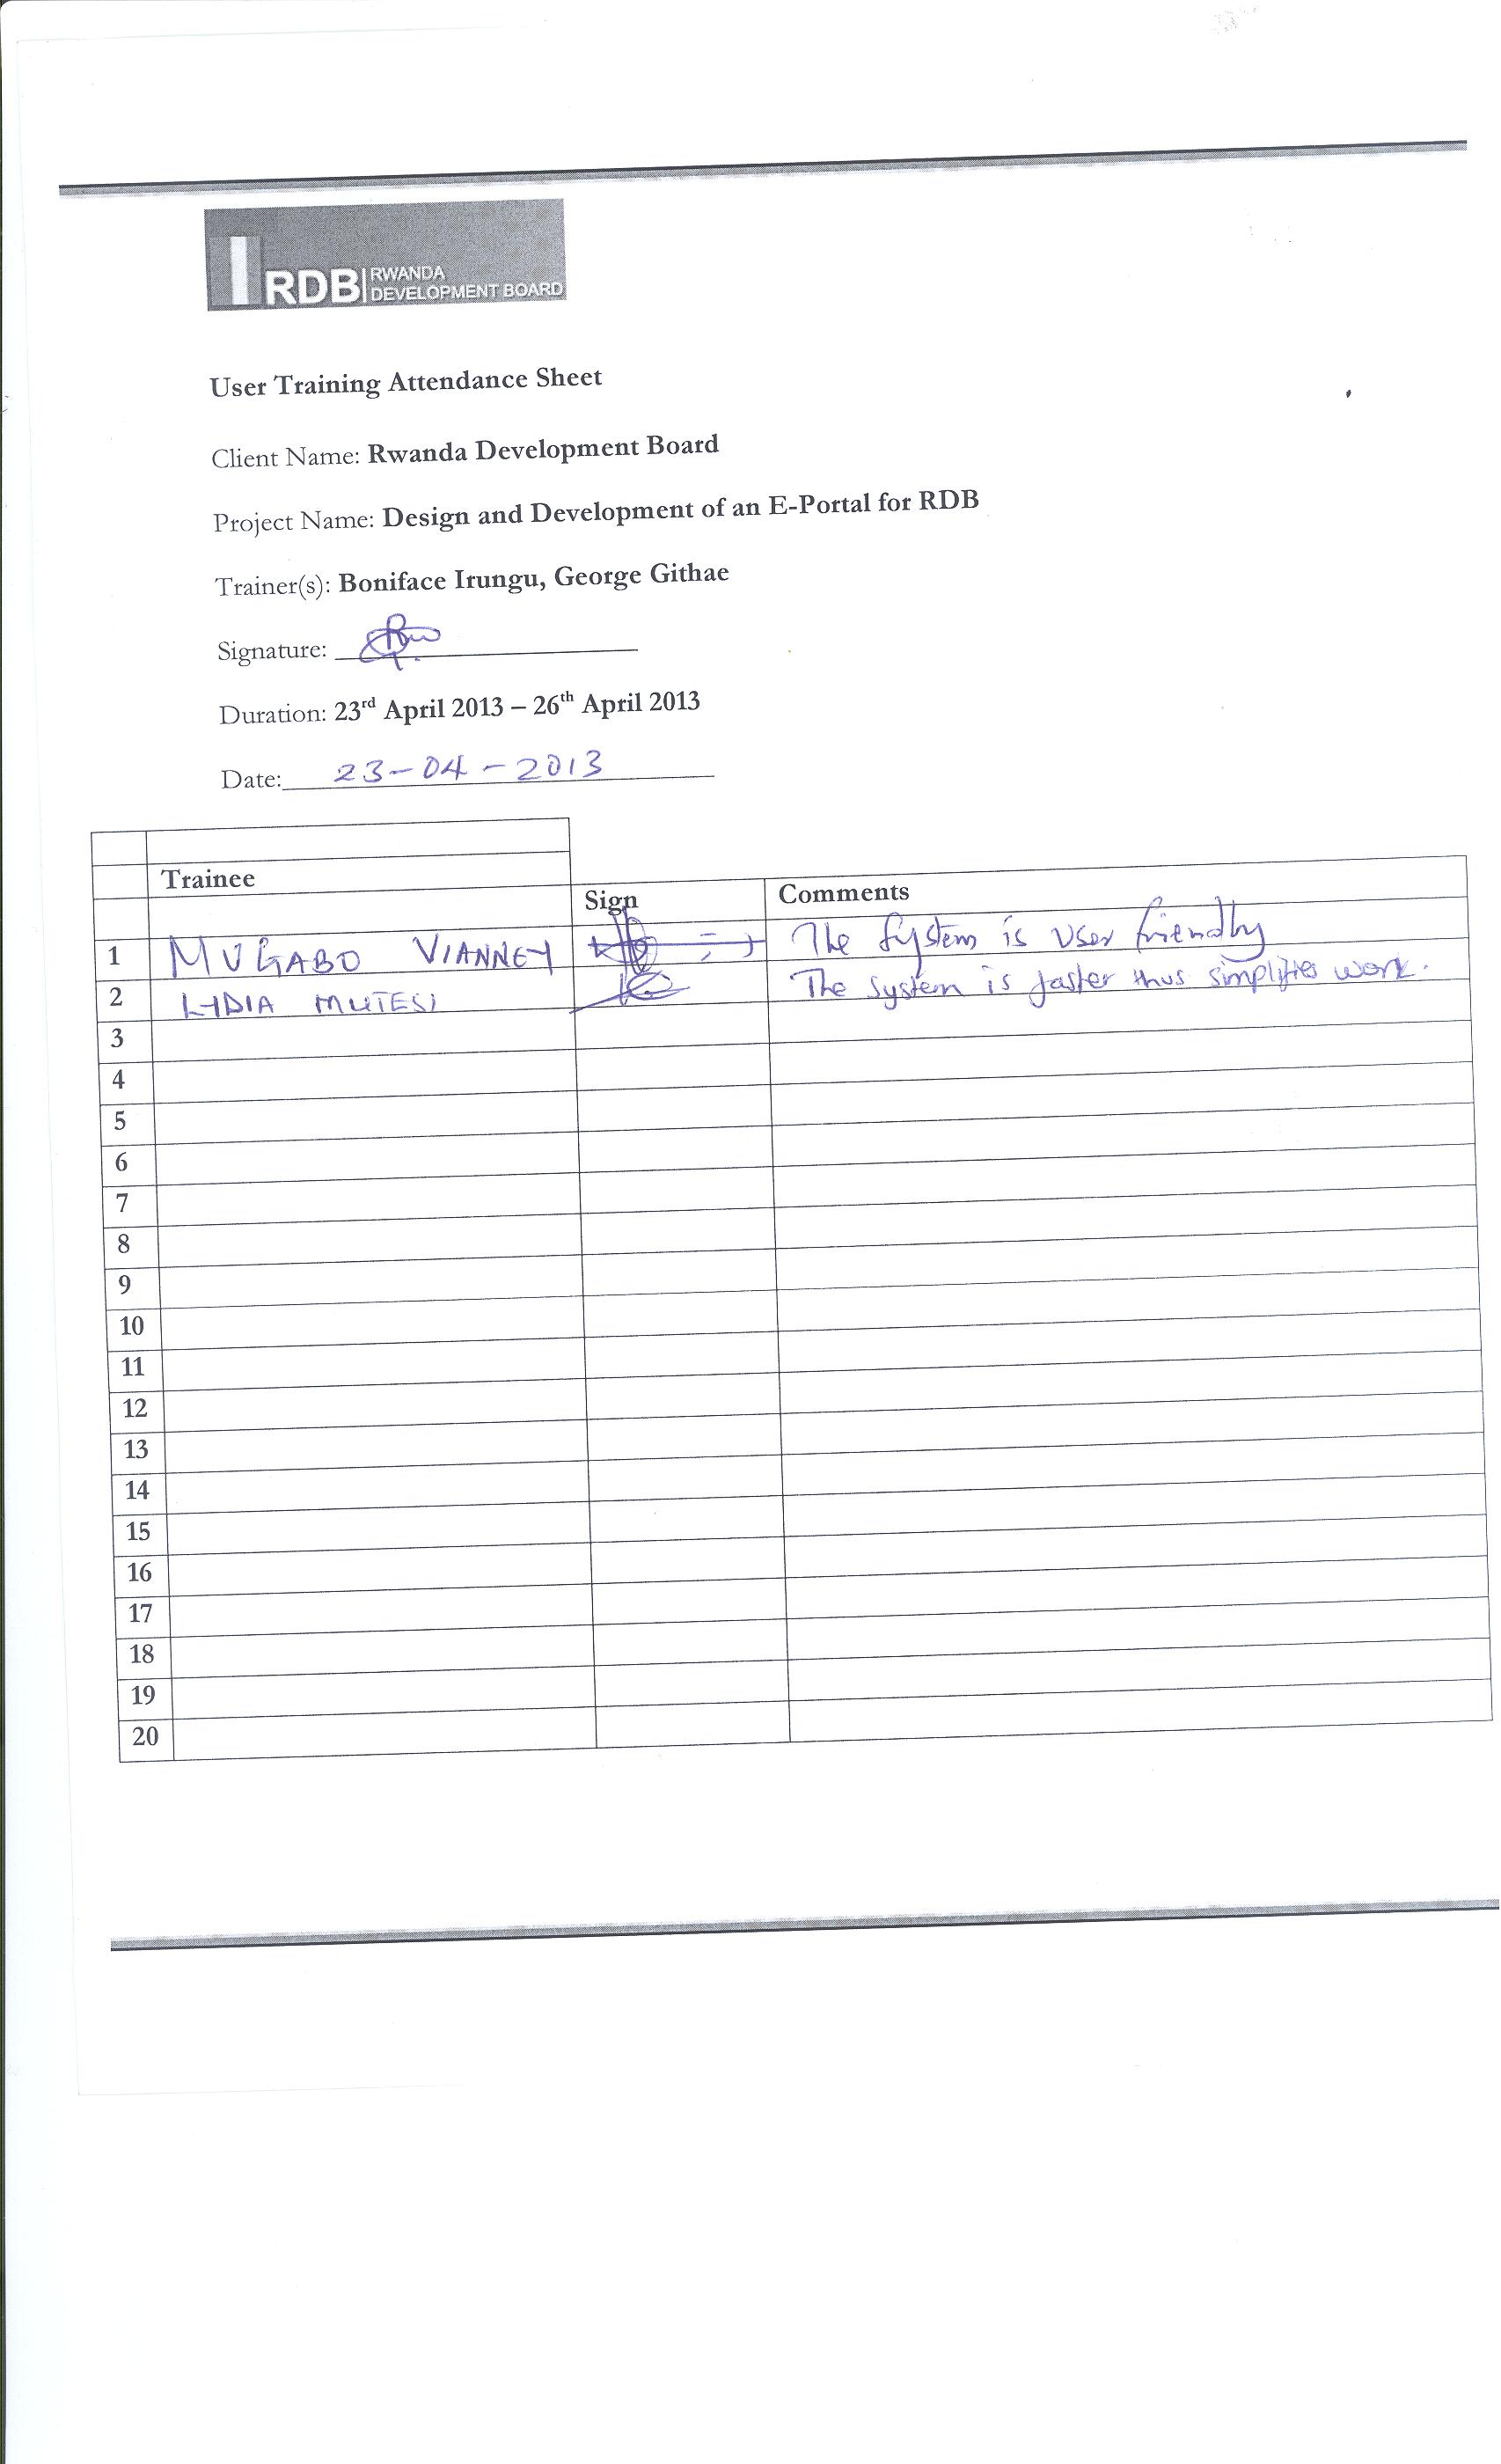 RDB RWANDA
DEVELOPMENT BOARD
User Training Attendance Sheet
Client Name: Rwanda Development Board
Project Name: Design and Development of an E-Portal for RDB
Trainer(s): Boniface Irungu, George Githae
Signature:
Duration: 23rd April 2013 – 26th April 2013
Date: 23-04-2013
Trainee
Sign Comments
1 MUGABO VIANNEY The System is User friendly
2 LYDIA MUTESI The system is faster thus simplifies work.
3
4
5
6
7
8
9
10
11
12
13
14
15
16
17
18
19
20